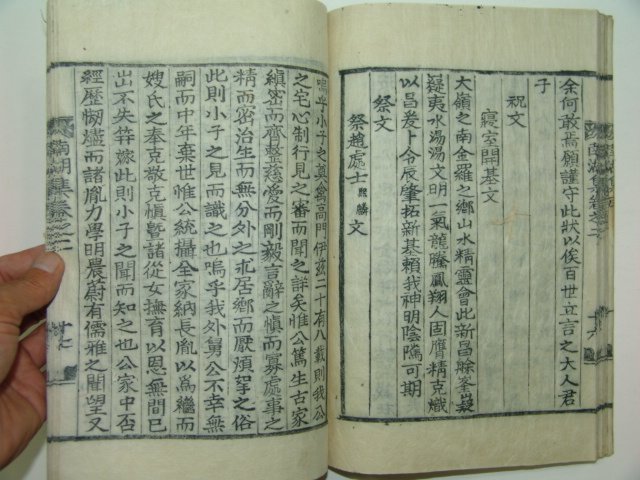 余何敢焉願謹守此狀以俟百世立言之大人君
子
祝文
寢室開基文
大嶺之南金羅之鄉山水精靈會此新昌餘峯嶷
嶷夷水湯湯文明一氣龍騰鳳翔人固膺精克熾
以昌爰卜令辰肇拓新基賴我神明陰隲可期
祭文
祭趙處士熙麟文
嗚乎小子之奠禽高門伊玆二十有八載則我公
之宅心制行見之審而聞之詳矣惟公篤生古家
縝密而齊整慈愛而剛毅言辭之愼而寡處事之
精而密治生而無分外之求居鄉而厭煩挐之俗
此則小子之見而識之也嗚乎我外舅公不幸無
嗣而中年棄世惟公統攝全家納長胤以爲繼而
嫂氏之奉克敬克愼曁諸從女撫育以恩無間已
出不失筓嫁此則小子之聞而知之也公家中否
經歷刼燼而諸胤力學明農蔚有儒雅之聞望又
南湖集卷之二
十七